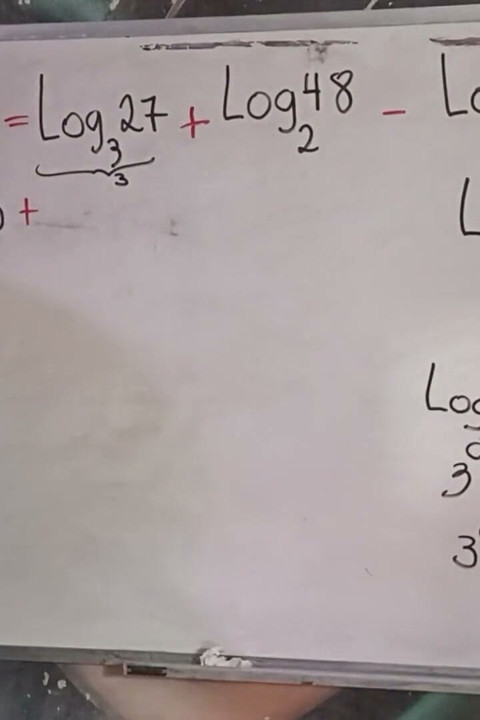 = Log₃27 + Log₂48 - Lo
3
+
L
Log
3
3